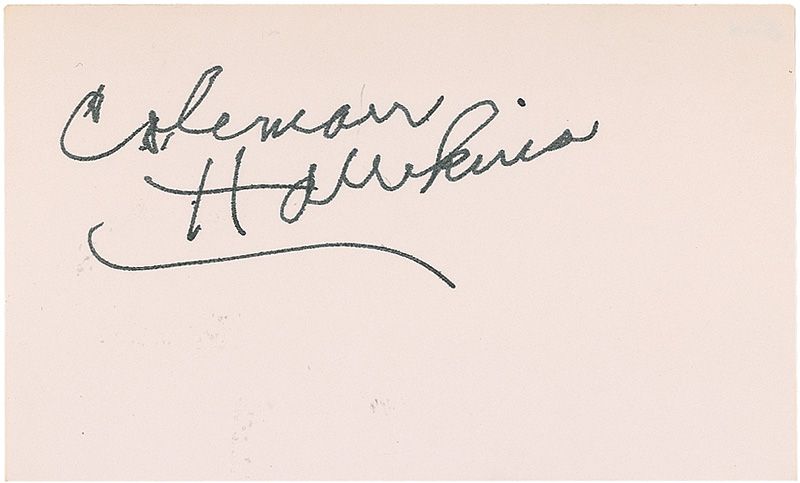 Coleman
Hawkins